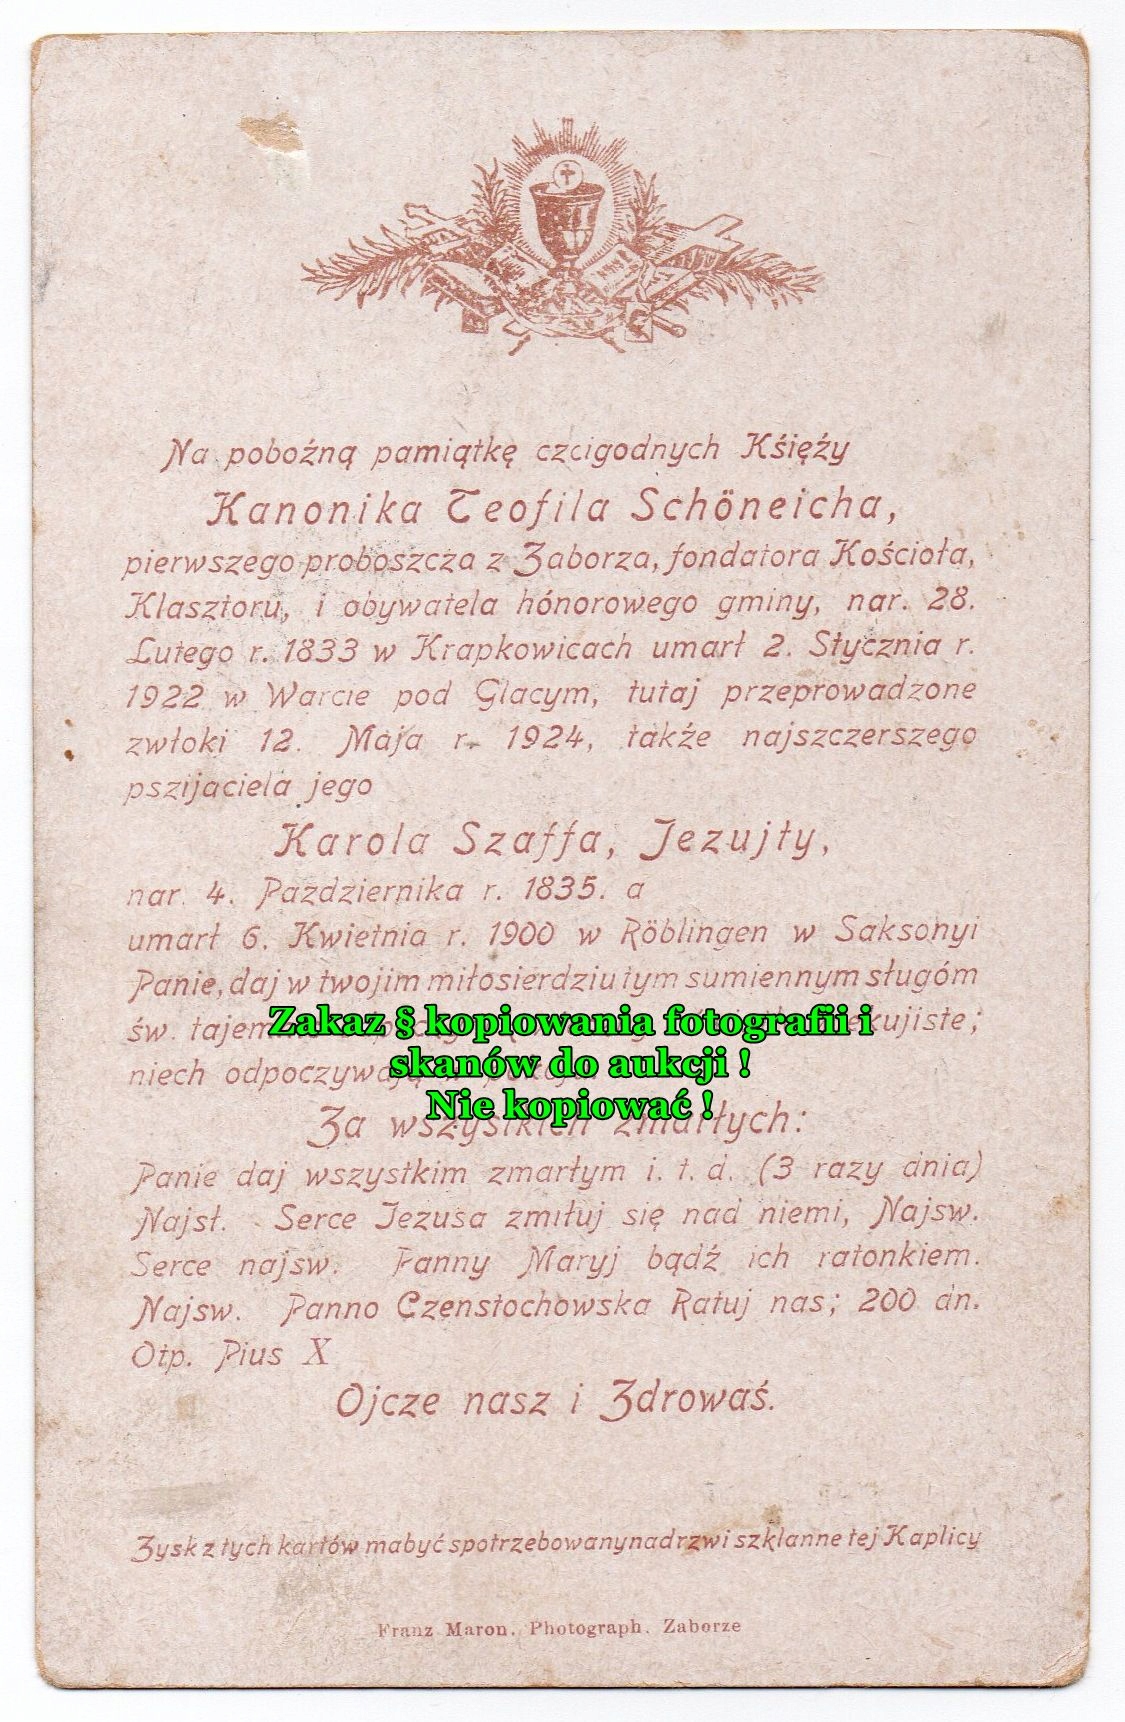 Na pobożną pamiątkę czcigodnych Kśięży
Kanonika Teofila Schöneicha,
pierwszego proboszcza z Zaborza, fondatora Kościoła,
Klasztoru, i obywatela hónorowego gminy, nar. 28.
Lutego r. 1833 w Krapkowicach umarł 2. Stycznia r.
1922 w Warcie pod Glacym, tutaj przeprowadzone
zwłoki 12. Maja r. 1924, także najszczerszego
pszijaciela jego
Karola Szaffa, Jezujty,
nar. 4. Pazdziernika r. 1835. a
umarł 6. Kwietnia r. 1900 w Röblingen w Saksonyi
Panie, daj w twojim miłosierdziu tym sumiennym sługóm
św.
Zakaz § kopiowania fotografii i
skanów do aukcji !
Nie kopiować !
niech odpoczywają w
Za wszystkich zmarłych:
Panie daj wszystkim zmartym i. t. d. (3 razy dnia)
Najsł. Serce Jezusa zmiłuj się nad niemi, Najsw.
Serce najsw. Panny Maryj bądź ich ratonkiem.
Najsw. Panno Czenstochowska Ratuj nas; 200 dn.
Otp. Pius X
Ojcze nasz i Zdrowaś.
Zysk z tych kartów mabyć spotrzebowanynadrzwi szklanne tej Kaplicy
Franz Maron, Photograph. Zaborze